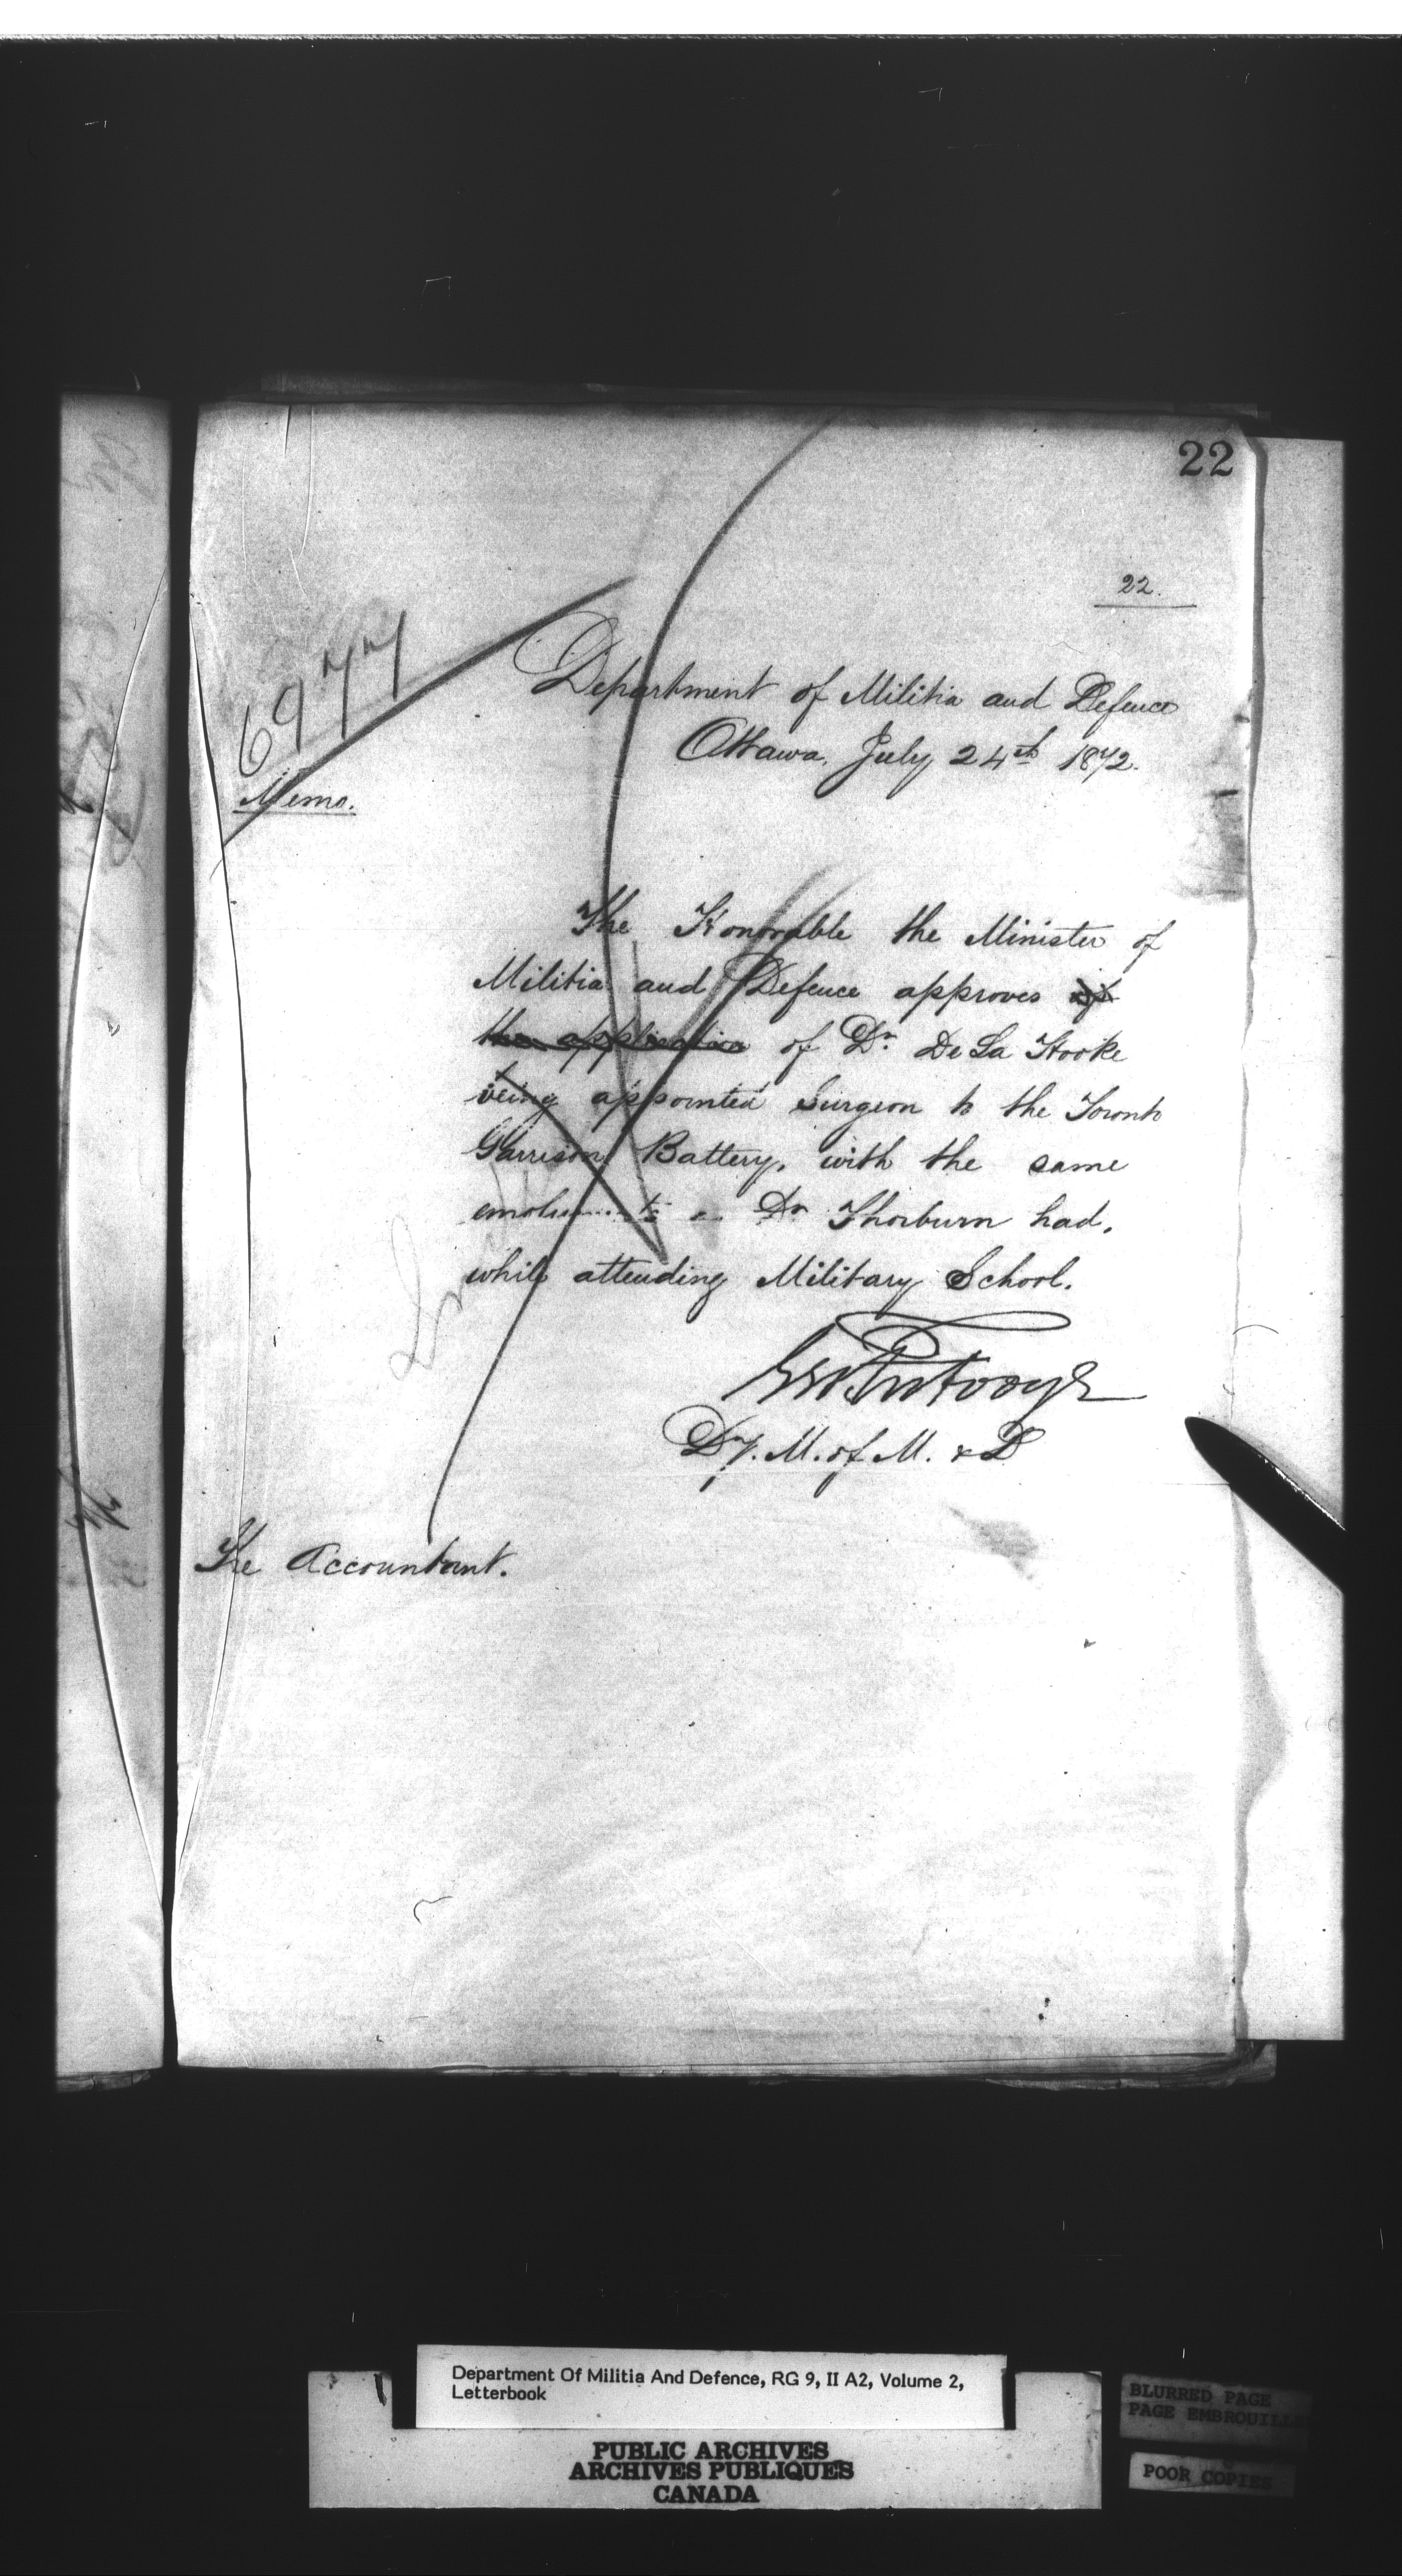 22
22.
6977
Department of Militia and Defence
Ottawa, July 24th 1872.
Memo.
The Honorable the Minister of
Militia and Defence approves of
the application of Dr. De La Hooke
being appointed Surgeon to the Toronto
Garrison Battery, with the same
Dr Thorburn had,
while attending Military School.
Dy. M. of M. & D
The Accountant.
Department Of Militia And Defence, RG 9, II A2, Volume 2,
Letterbook
PUBLIC ARCHIVES
ARCHIVES PUBLIQUES
CANADA
BLURRED PAGE
PAGE EMBROUILL
POOR COPIES